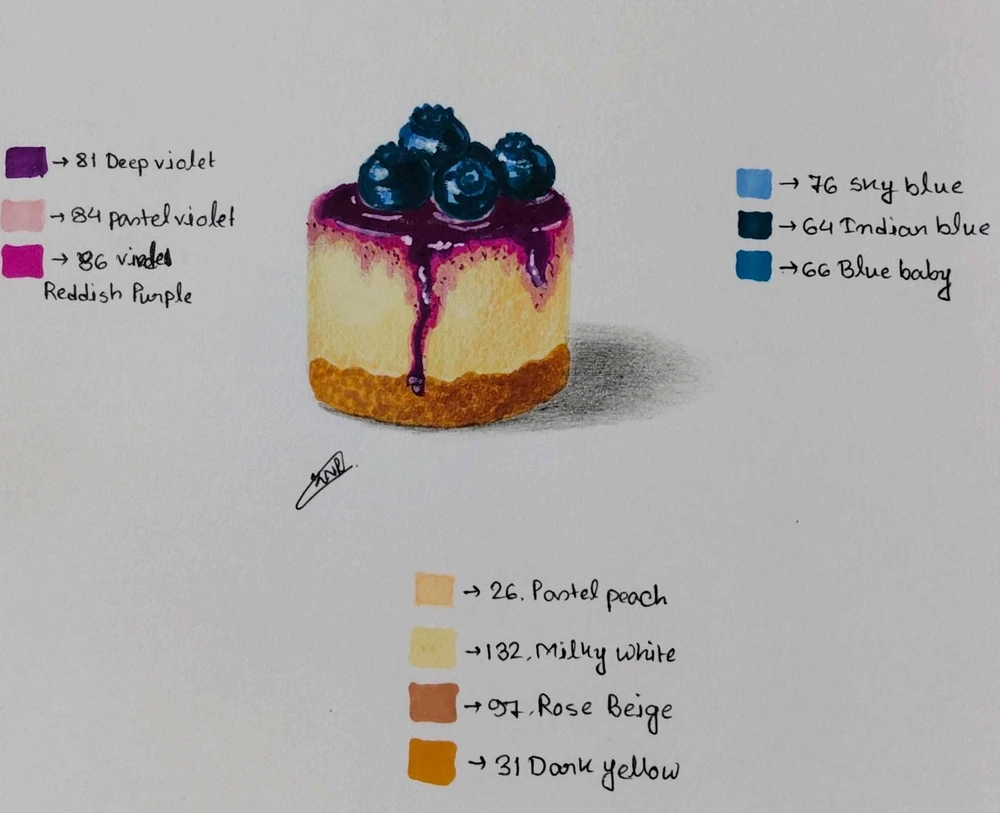 → 81 Deep violet
→ 84 pastel violet
→ 86
Reddish Purple
→ 76 sky blue
→ 64 Indian blue
→ 66 Blue baby
→ 26. Pastel peach
→ 132. Milky white
→ 97. Rose Beige
→ 31 Dark yellow